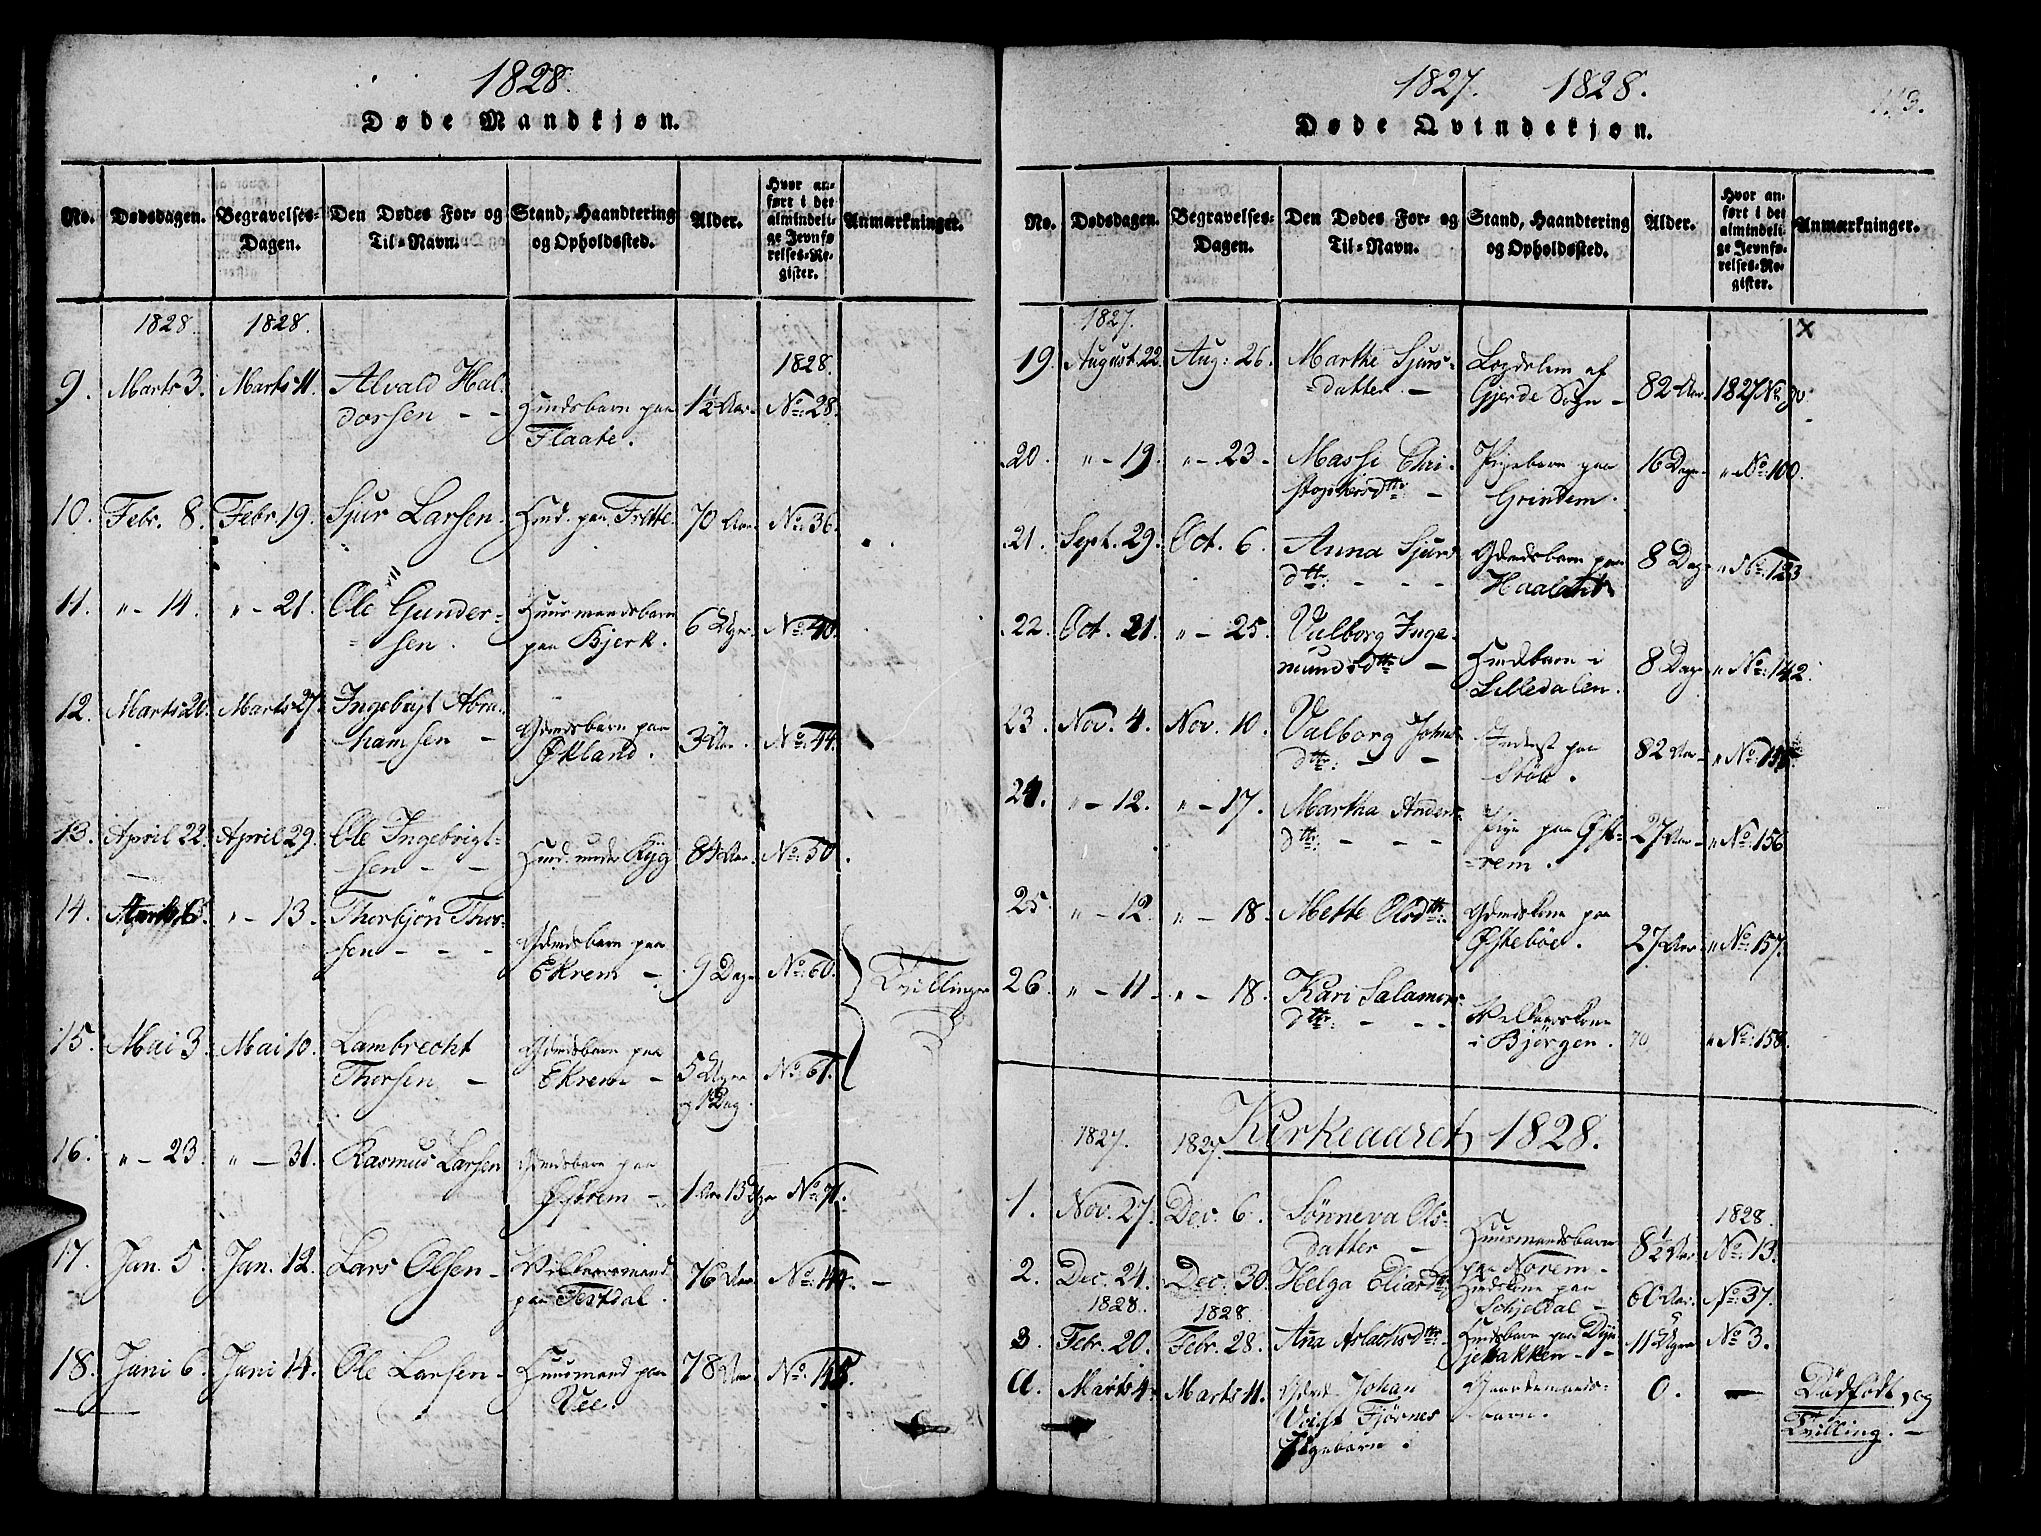 1828.
Døde Mandkjøn.
No.
Dødsdagen.
Begravelses-
Dagen.
Den Dødes For- og
Til-Navn.
Stand, Haandtering
og Opholdssted.
Alder.
Hvor an-
ført i det
almindeli-
ge Jevnfø
relses-Re-
gister.
Anmærkninger.
1828. 1828.
1828.
9. Marts 3. Marts 11. Alvald Hal-
dorsen - - paa 1½ Aar No: 28.
Flaate.
10. Febr. 8. Febr. 19. Sjur Larsen. paa Frette. 70 Aar No: 36.
11. " - 14. " - 21. Ole Gunder-
sen. Huusmandsbarn
paa Bjerk. 6 Uger No: 40.
12. Marts 20. Marts 27. Ingebrigt Abra-
hamsen - Gdmdsbarn paa
Økland. 3 Aar. No: 44.
13. April 22. April 29. Ole Ingebrigt-
sen - - under Ryg 84 Aar. No: 50.
14. " - 13. Thorbjön Thor-
sen - - - Gdmdsbarn paa
Ekrem - 9 Dage No: 60.
Tvillinger
15. Mai 3. Mai 10. Lambrecht
Thorsen - Gdmdsbarn paa
Ekrem - 5 Uger No: 61.
og 1 Dag.
16. " - 23. " - 31. Rasmus Larsen Gdmdsbarn paa
Østrem - 1 Aar No: 71.
17. Jan. 5. Jan. 12. Lars Olsen -
paa 76 Aar No:
18. Juni 6. Juni 14. Ole Larsen - Huusmand paa
Vee. 78 Aar No: 145.
1827. 1828.
113.
Døde Qvindekjøn.
No.
Dødsdagen.
Begravelses-
Dagen.
Den Dødes For- og
Til-Navn.
Stand, Haandtering
og Opholdssted.
Alder.
Hvor an-
ført i det
almindeli-
ge Jevnfø-
relses-Re-
gister.
Anmærkninger.
1827.
x
19. August 22. Aug: 26. Marthe Sjurs-
datter - Legdelem af
Gjerde Sogn - 82 Aar 1827 No:
20. " - 19. " - 23. Massi Chri-
stophersdtr: - Pigebarn paa
Grindem. 16 Dage " No: 100.
21. Sept. 29. Oct. 6. Anna Sjurs
dtr: - - - Gdmdsbarn paa
8 Dage " No: 123
22. Oct. 21. " - 25. Valborg Inge-
mundsdtr: - i
Lilledalen. 8 Dage " No: 142.
23. Nov. 4. Nov. 10. Valborg Johns
dtr: - - Inderst paa
Støle. 82 Aar - " No:
24. " - 12. " - 17. Martha Anders
dtr: - - - Pige paa Øst-
rem. 27 Aar - " No: 156
25 " - 12. " - 18. Mette Olsdtr: Gdmdskone paa
Østebøe. 27 Aar " No: 157.
26. " - 11 - " - 18. Kari Salamons
dtr: - - -
i Bjørgen. 70 " No: 158.
Kirkeaaret 1828.
1827. 1827.
1828.
1. Nov. 27. Dec. 6. Sønneva Ols-
datter - Huusmandsbarn
paa Norem - 8½ Aar No: 13.
2. Dec. 24. Dec. 30. Helga Eliasdtr paa
Schjoldal - 60 Aar. No: 37.
1828. 1828.
3 Febr. 20. Febr. 28. Ana Aslachsdtr: paa
11 Uger No 3.
a. Marts 4. Marts 11. Johan
Voigt Fjørnes
Pigebarn. Gaardmands-
barn. 0. - Dødfødt, og
Tvilling. -